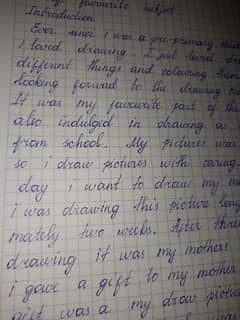 my favourite subject
Introduction
Ever since i was a pre-primary stud
i loved drawing. I just loved dra
different things and colouring them
looking forwad to the drawing cla
It was my favourite part of the
also indulged in drawing as
from school. My pictures was
so i draw pictures with caring.
day i want to draw my m
i was drawing this picture long
mately two weeks. After three
drawing it was my mothers
i gave a gift to my mother.
gift was a my draw pictur